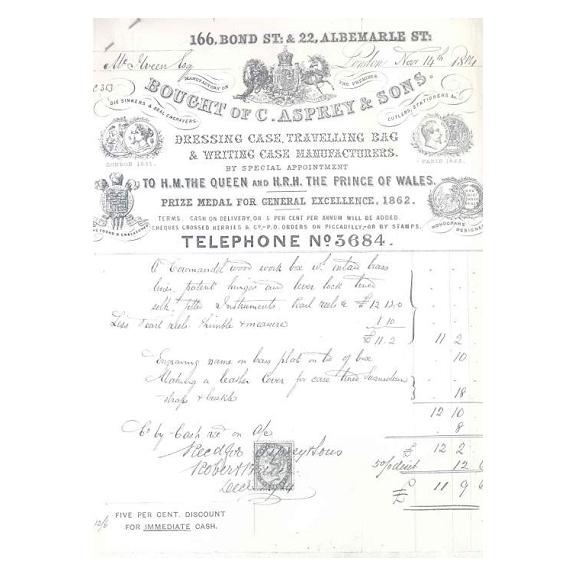 166, BOND ST: & 22, ALBEMARLE ST:
London Nov 14th
Esq
MANUFACTORY ON THE PREMISES
BOUGHT OF C. ASPREY & SONS.
DIE SINKERS & SEAL ENGRAVERS.
CUTLERS, STATIONERS &c.
DRESSING CASE, TRAVELLING BAG
& WRITING CASE MANUFACTURERS.
LONDON 1851.
PARIS 1855.
BY SPECIAL APPOINTMENT
TO H.M. THE QUEEN AND H.R.H. THE PRINCE OF WALES.
PRIZE MEDAL FOR GENERAL EXCELLENCE, 1862.
TERMS. CASH ON DELIVERY, OR 5 PER CENT PER ANNUM WILL BE ADDED.
CHEQUES CROSSED HERRIES & Co,-P.O. ORDERS ON PICCADILLY,-OR BY STAMPS.
MONOGRAMS DESIGNED
TELEPHONE No 3684.
A Coromandel wood work box wt. inlaid brass
lines, patent hinges and lever lock lined
silk. Instruments Pearl reels & £12 12.0
Less Pearl reels thimble & measure 1 10
£11.2 11 2
Engraving name on brass plate on top of box 10
Making a leather Cover for case lined
straps & buckle 18
12 10
Cr by Cash recd on a/c 8
£ 12 2
Asprey & Sons
5% disct 12 6
Robert
Decr
£ 11 9 6
FIVE PER CENT. DISCOUNT
FOR IMMEDIATE CASH.
12/6